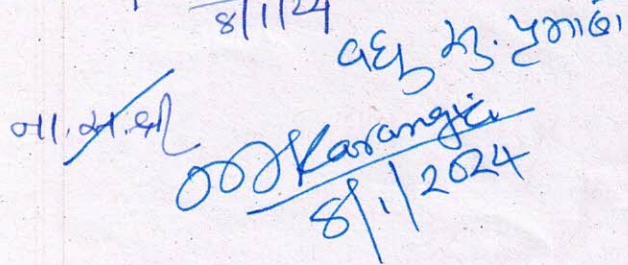 8/1/24
વધુ મુ. પ્રમાણે
ના.મ.શ્રી
Karangiya
8/1/2024